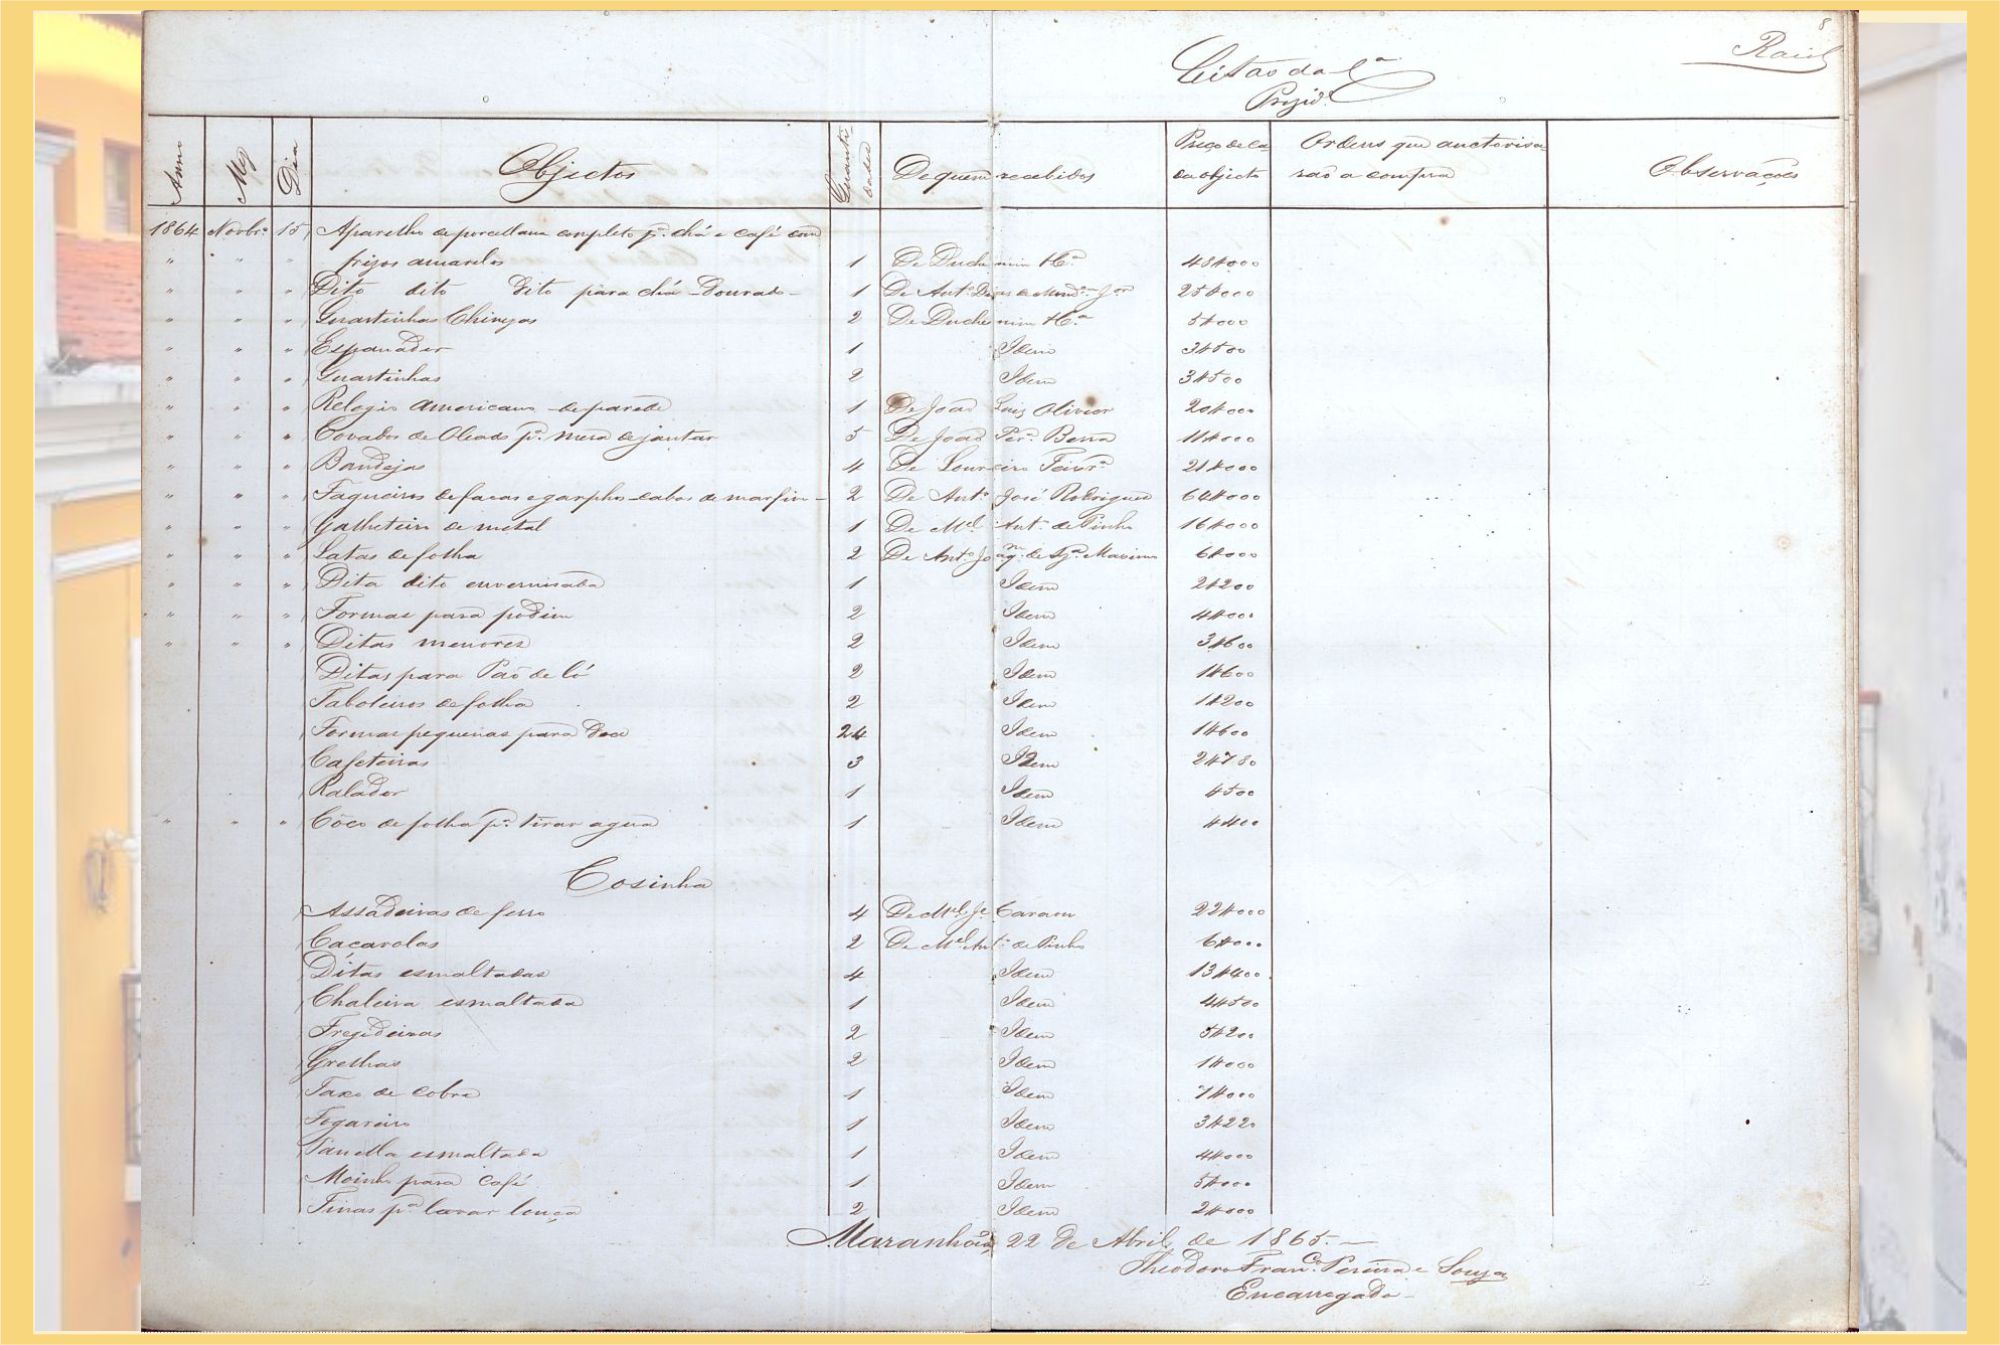 8
Raiol
Prezid.
Anno Mez Dia Objectos Quanti-dades De quem recebidos Preço de ca-da objecto Ordens que auctorisa-rão a compra Observações
1864 Novbrº 15 Aparelho de porcellana completo pª chá e café com
" " " frizos amarelos 1 De Duchemin & Cª 48$000
" " " Dito dito dito para chá - Dourado - 1 De Antº Dias de Jor 25$000
" " " Quartinhas Chinezas 2 De Duchemin & Cª 5$000
" " " Espanador 1 Idem 3$500
" " " Quartinhas 2 Idem 3$500
" " " Relogio americano de parede 1 De João Luiz Olivier 20$000
" " " Covados de Oleado pª meza de jantar 5 De João Perª 11$000
" " " Bandejas 4 De Loureiro 21$000
" " " Faqueiros de facas e garphos - cabos de marfim - 2 De Antº José Rodrigues 64$000
" " " Galheteiro de metal 1 De Mel Antº de Pinho 16$000
" " " Latas de folha 2 De Antº Joaqm de 6$000
" " " Dita dito envernisada 1 Idem 2$200
" " " Formas para podim 2 Idem 4$000
" " " Ditas menores 2 Idem 3$600
Ditas para Pão de ló 2 Idem 1$600
Taboleiros de folha 2 Idem 1$200
Formas pequenas para doce 24 Idem 1$600
Cafeteiras 3 Idem 2$780
Ralador 1 Idem $500
" " " Côco de folha pª tirar agua 1 Idem $400
Cosinha
Assadeiras de ferro 4 De Mel Je 22$000
Caçarolas 2 De Mel Antº de Pinho 6$000
Ditas esmaltadas 4 Idem 13$400
Chaleira esmaltada 1 Idem 4$500
Fregideiras 2 Idem 5$200
Grelhas 2 Idem 1$000
Taxo de cobre 1 Idem 7$000
Fogareiro 1 Idem 3$220
Panella esmaltada 1 Idem 4$000
Moinho para café 1 Idem 5$000
Tinas pª lavar louça 2 Idem 2$000
Maranhão, 22 de Abril de 1865.-
Theodoro Franco Pereira e Souza
Encarregado -